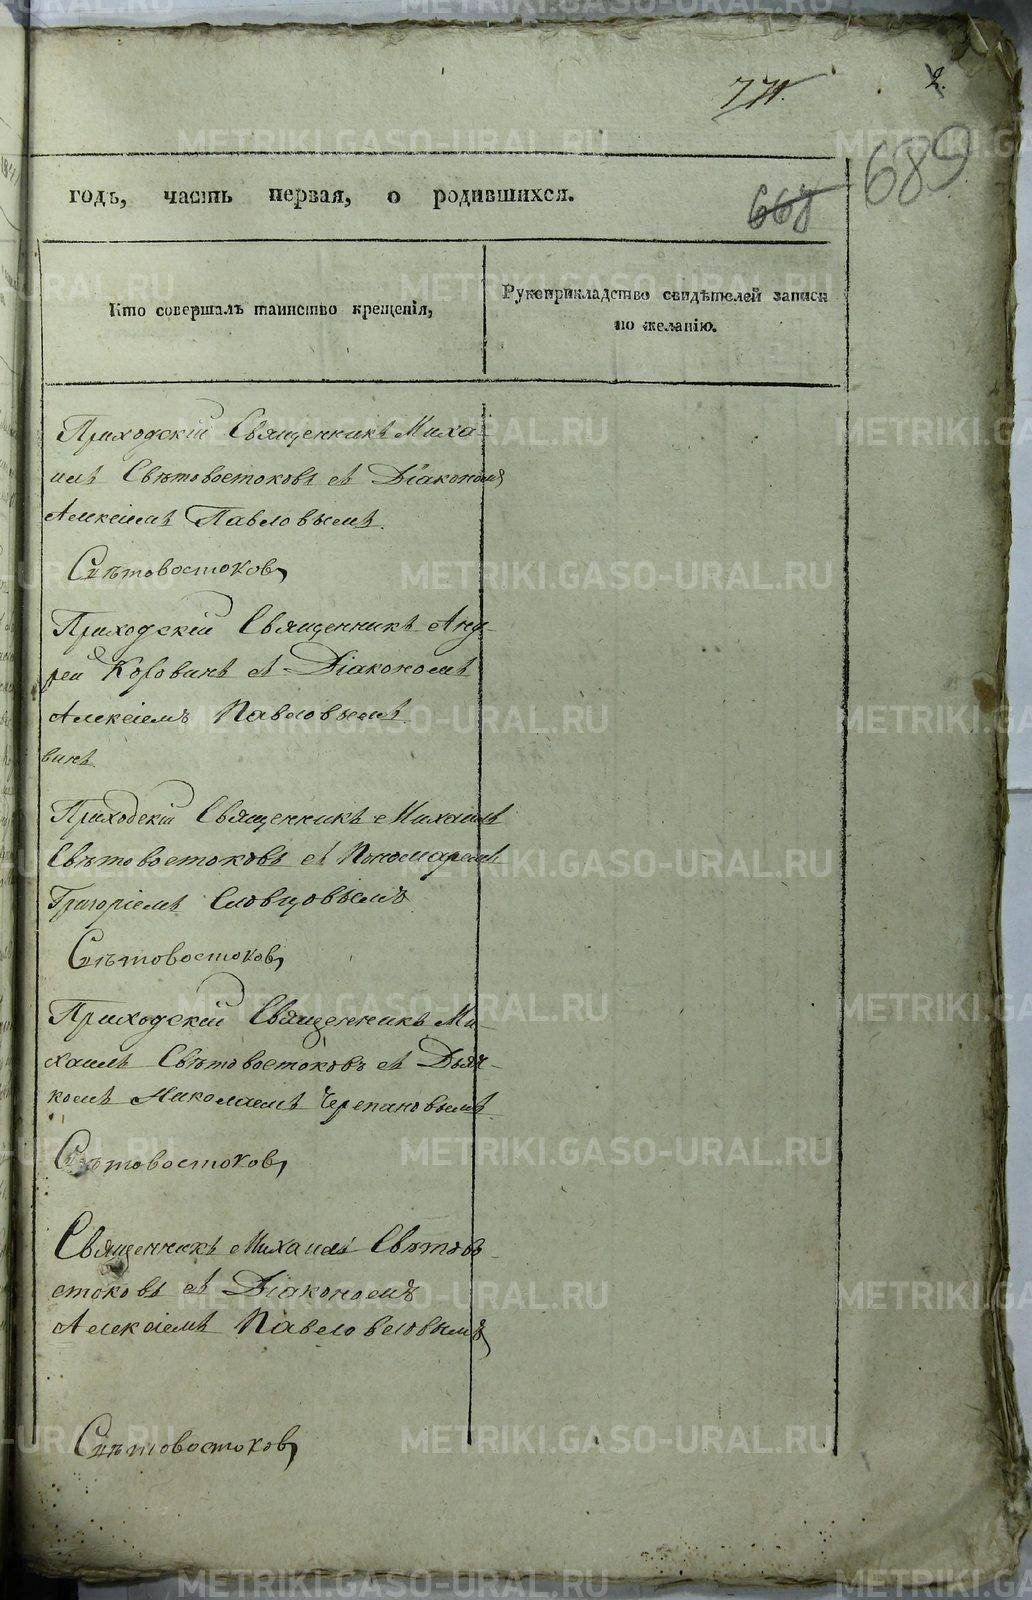 771.
2.
689
668
годъ, часть первая, о родившихся.
Кто совершалъ таинство крещенія,
Рукоприкладство свидѣтелей записи
по желанію.
Приходскій Священникъ Миха-
илъ Свѣтовостоковъ съ Діакономъ
Алексіемъ Павловымъ.
Свѣтовостоковъ
Приходскій Священникъ Анд-
рей Коровинъ съ Діакономъ
Алексіемъ Павловымъ
винъ
Приходскій Священникъ Михаилъ
Свѣтовостоковъ съ Пономаремъ
Григоріемъ Словцовымъ
Свѣтовостоковъ
Приходскій Священникъ Ми-
хаилъ Свѣтовостоковъ съ Дьяч-
комъ Николаемъ Черепановымъ
Свѣтовостоковъ
Священникъ Михаилъ Свѣтов-
стоковъ съ Діакономъ
Алексіемъ
Свѣтовостоковъ
METRIKI.GASO-URAL.RU